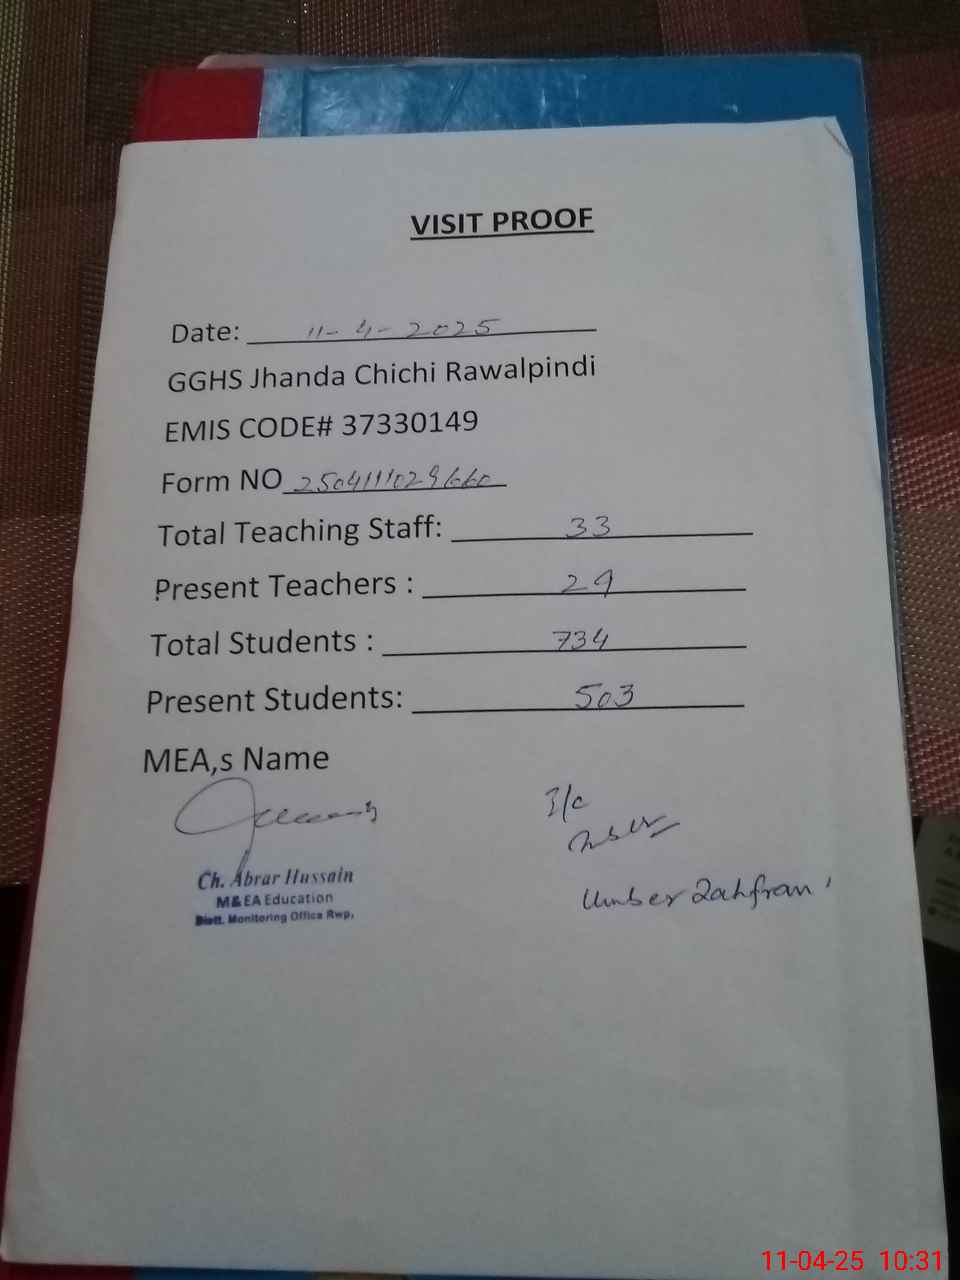 VISIT PROOF
Date: 11-4-2025
GGHS Jhanda Chichi Rawalpindi
EMIS CODE# 37330149
Form NO
Total Teaching Staff: 33
Present Teachers : 29
Total Students : 734
Present Students: 503
MEA,s Name
I/c
Ch. Abrar Hussain
M&EA Education
Distt. Monitoring Office Rwp.
Umber Zahfran
11-04-25 10:31